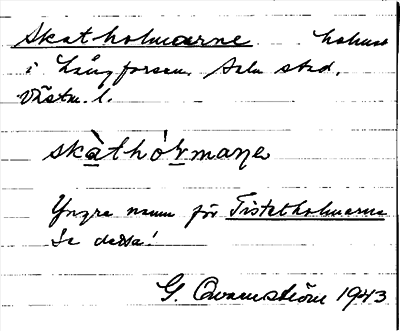 Skatholmarne holmar
i Långforsen, Sala stad,
Västm. l.
skàthólmaɳe
Yngre namn för Tistelholmarna
Se dessa!
G. Qvarnström 1943